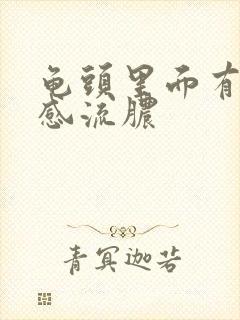 龟頭里而有
感流膿
青冥迦若